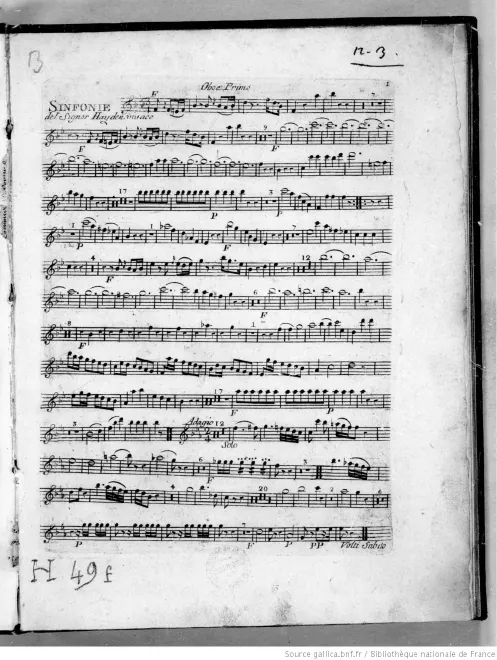 B
n-3.
Oboe Primo
1
SINFONIE
del Signor Hayden
F
7
F
9
17
P
3
P
1
1
P
F
4
F
12
6
F
8
1
F
17
F
P
3
Adagio 12
Solo
6
F
3
4
F
20
2
P
7
F
P
PP
Volti Subito
H 49 f
Source gallica.bnf.fr / Bibliothèque nationale de France